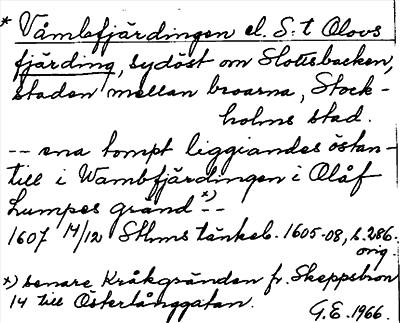 * Våmbfjärdingen el. S:t Olovs
fjärding, sydöst om Slottsbacken,
staden mellan broarna, Stock-
holms stad.
-- ena tompt liggiandes östan-
till i Wambfjärdingen i Olåf
Lumpes gränd *) --
1607 14/12 Sthms tänkeb. 1605-08, s. 286.
orig.
*) senare Kråkgränden fr. Skeppsbron
14 till Österlånggatan.
G.E. 1966.